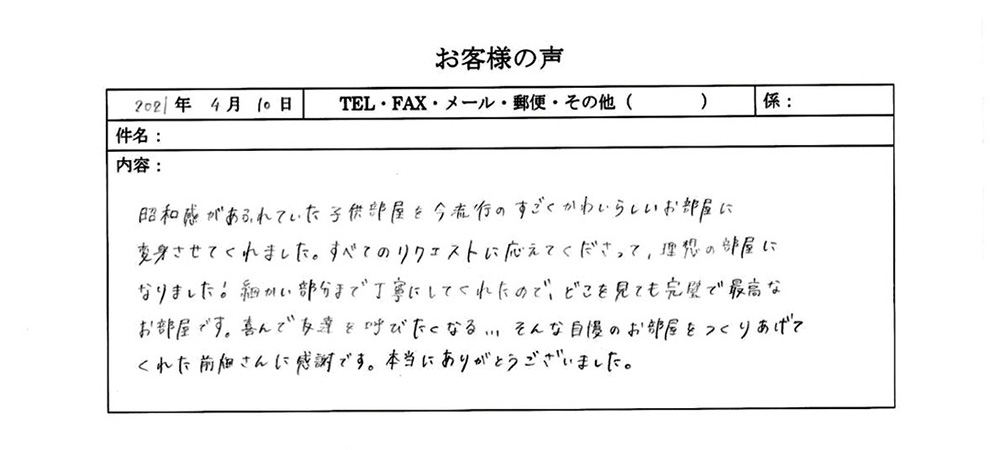 お客様の声
2021年 4月 10日 TEL・FAX・メール・郵便・その他( ) 係：
件名：
内容：
昭和感があふれていた子供部屋を今流行のすごくかわいらしいお部屋に
変身させてくれました。すべてのリクエストに応えてくださって、理想の部屋に
なりました！細かい部分まで丁寧にしてくれたので、どこを見ても完璧で最高な
お部屋です。喜んで友達を呼びたくなる... そんな自慢のお部屋をつくりあげて
くれた前畑さんに感謝です。本当にありがとうございました。